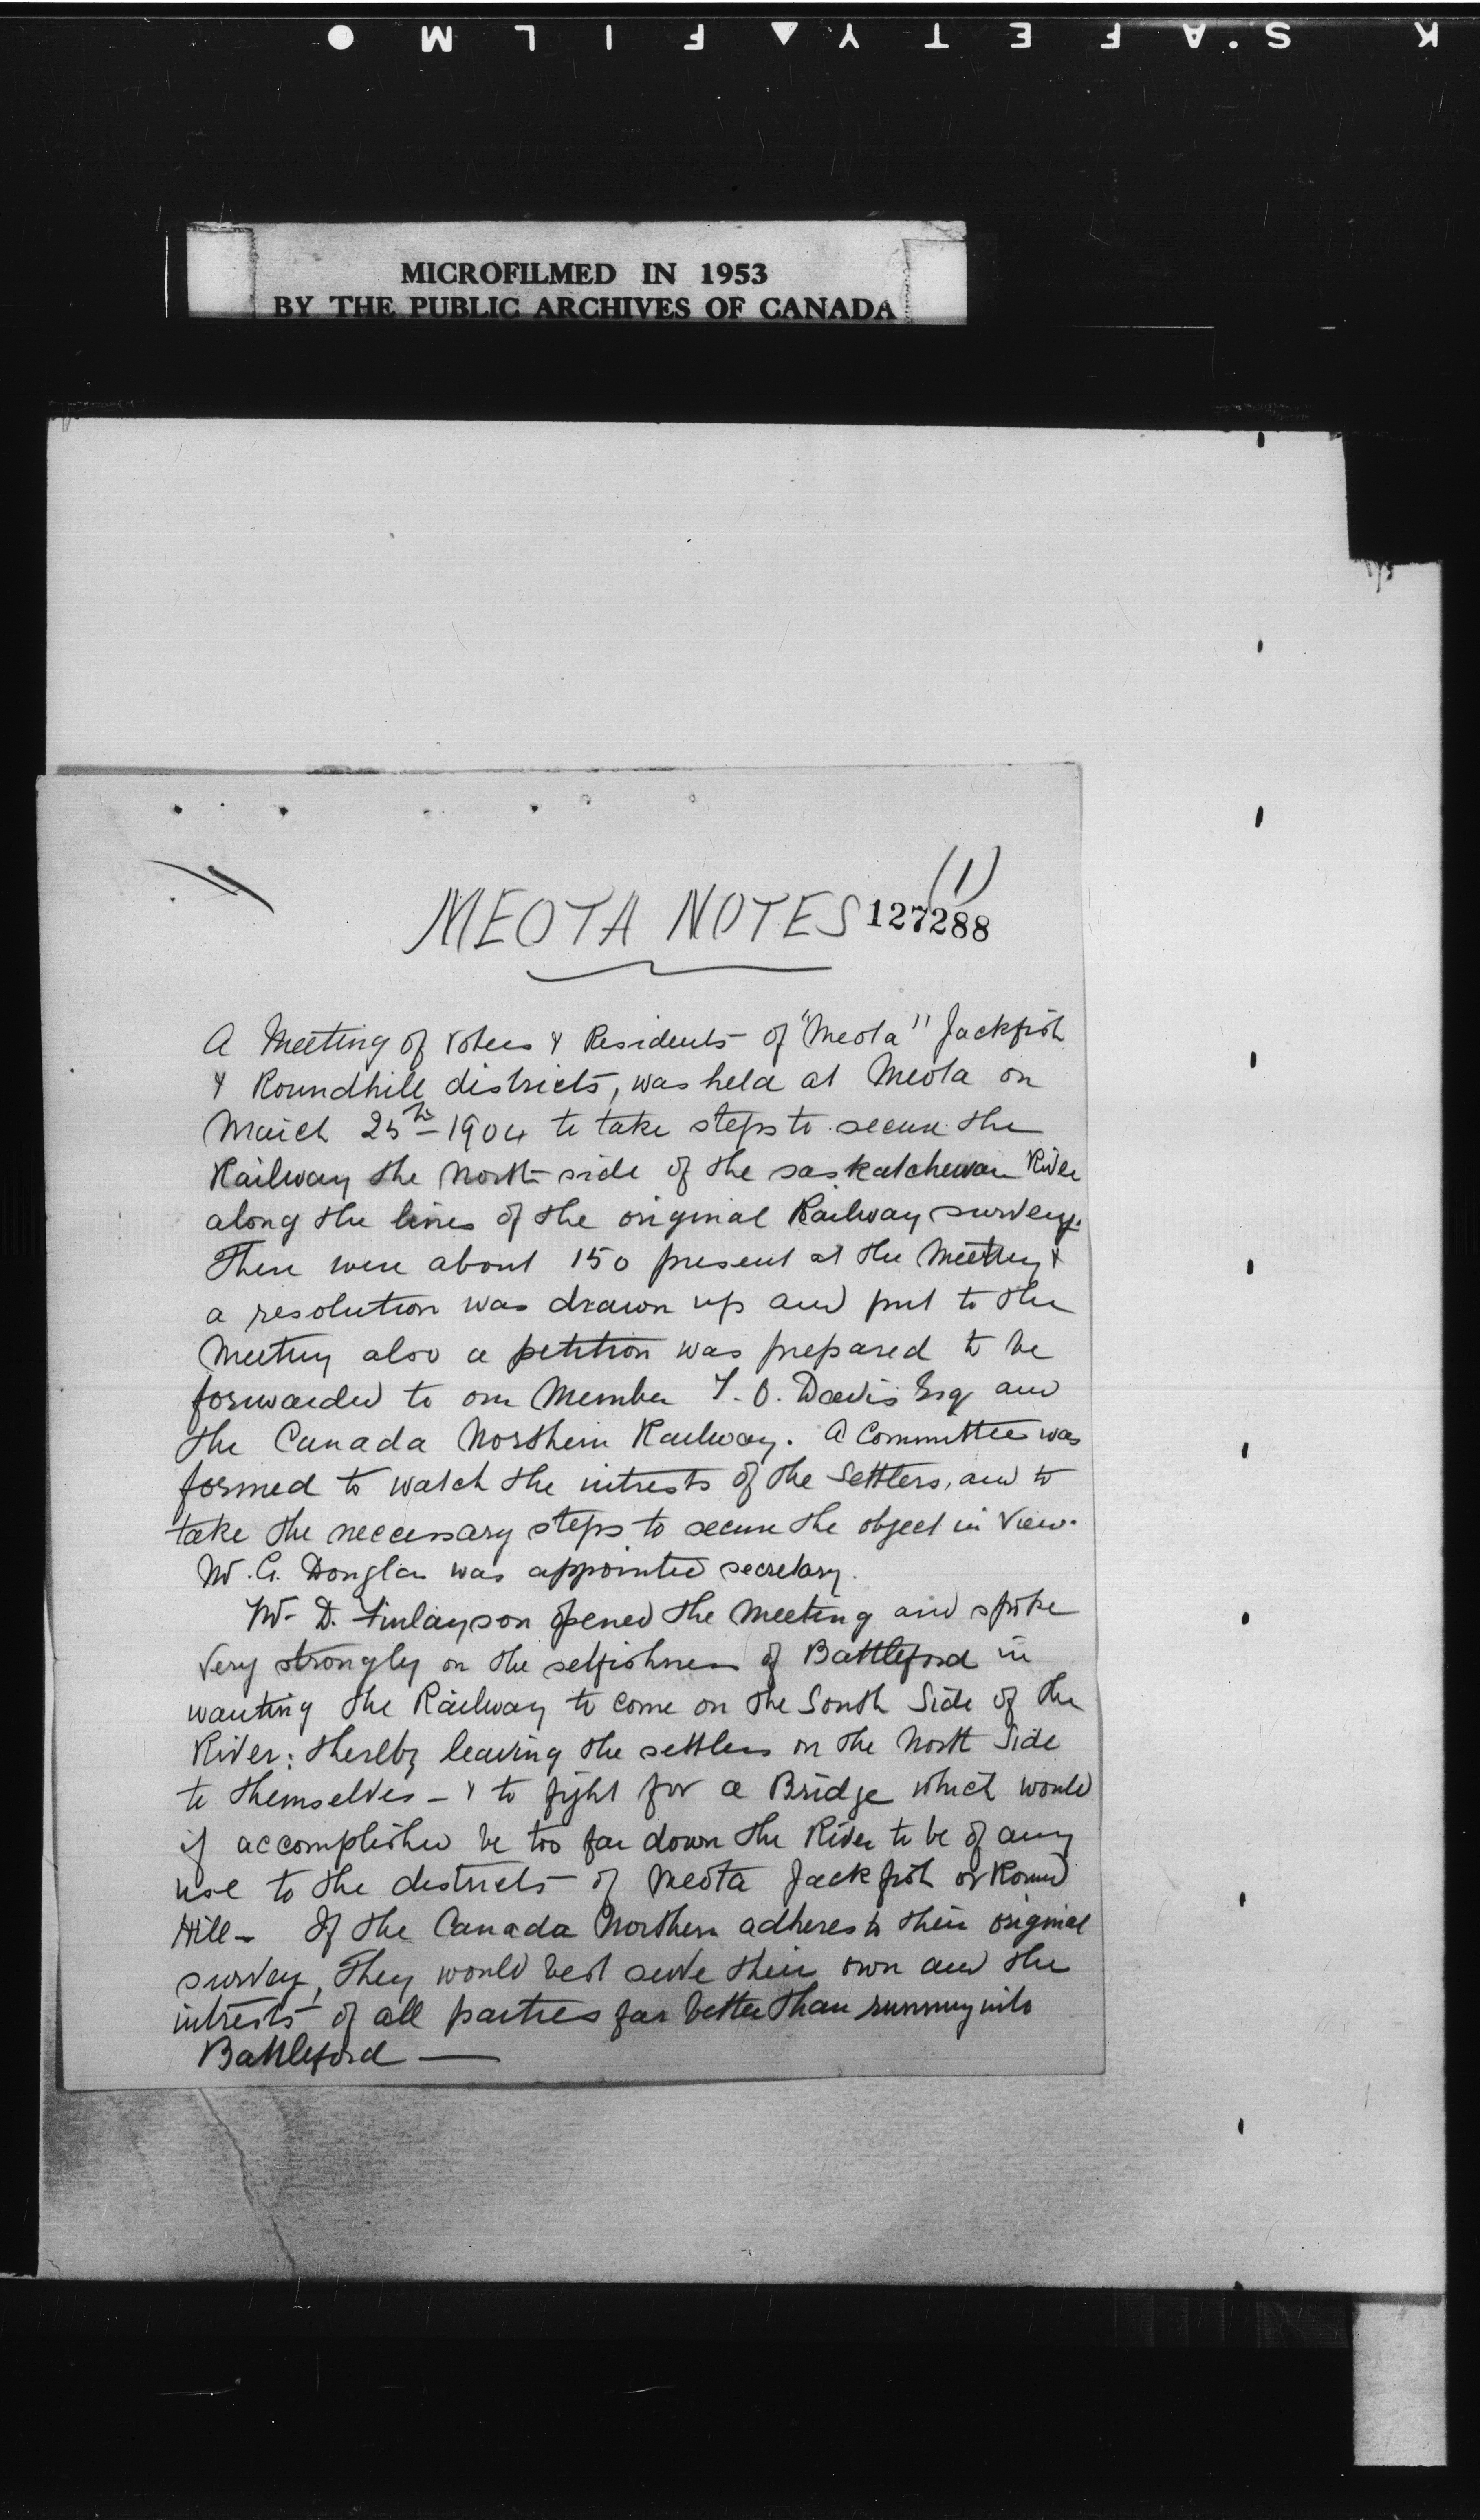 K SAFETY FILM
MICROFILMED IN 1953
BY THE PUBLIC ARCHIVES OF CANADA
(1)
MEOTA NOTES 127288
A Meeting of voters & Residents of "Meota" Jackfish
& Roundhill districts, was held at Meota on
March 25th 1904 to take steps to secure the
Railway the North side of the saskatchewan River
along the lines of the original Railway survey.
There were about 150 present at the Meeting &
a resolution was drawn up and put to the
Meeting also a petition was prepared to be
forwarded to our Member T. O. Davis Esq and
the Canada Northern Railway. A Committee was
formed to watch the intrests of the Settlers, and to
take the neccessary steps to secure the object in View.
Mr. G. Douglas was appointed secretary.
Mr. D. Finlayson opened the Meeting and spoke
very strongly on the selfishness of Battleford in
wanting the Railway to come on the South Side of the
River: thereby leaving the settlers on the North Side
to themselves - & to fight for a Bridge which would
if accomplished be too far down the River to be of any
use to the districts of Meota Jackfish or Round
Hill - If the Canada Northern adheres to their original
survey, They would best serve their own and the
intrests of all parties far better than running into
Battleford —